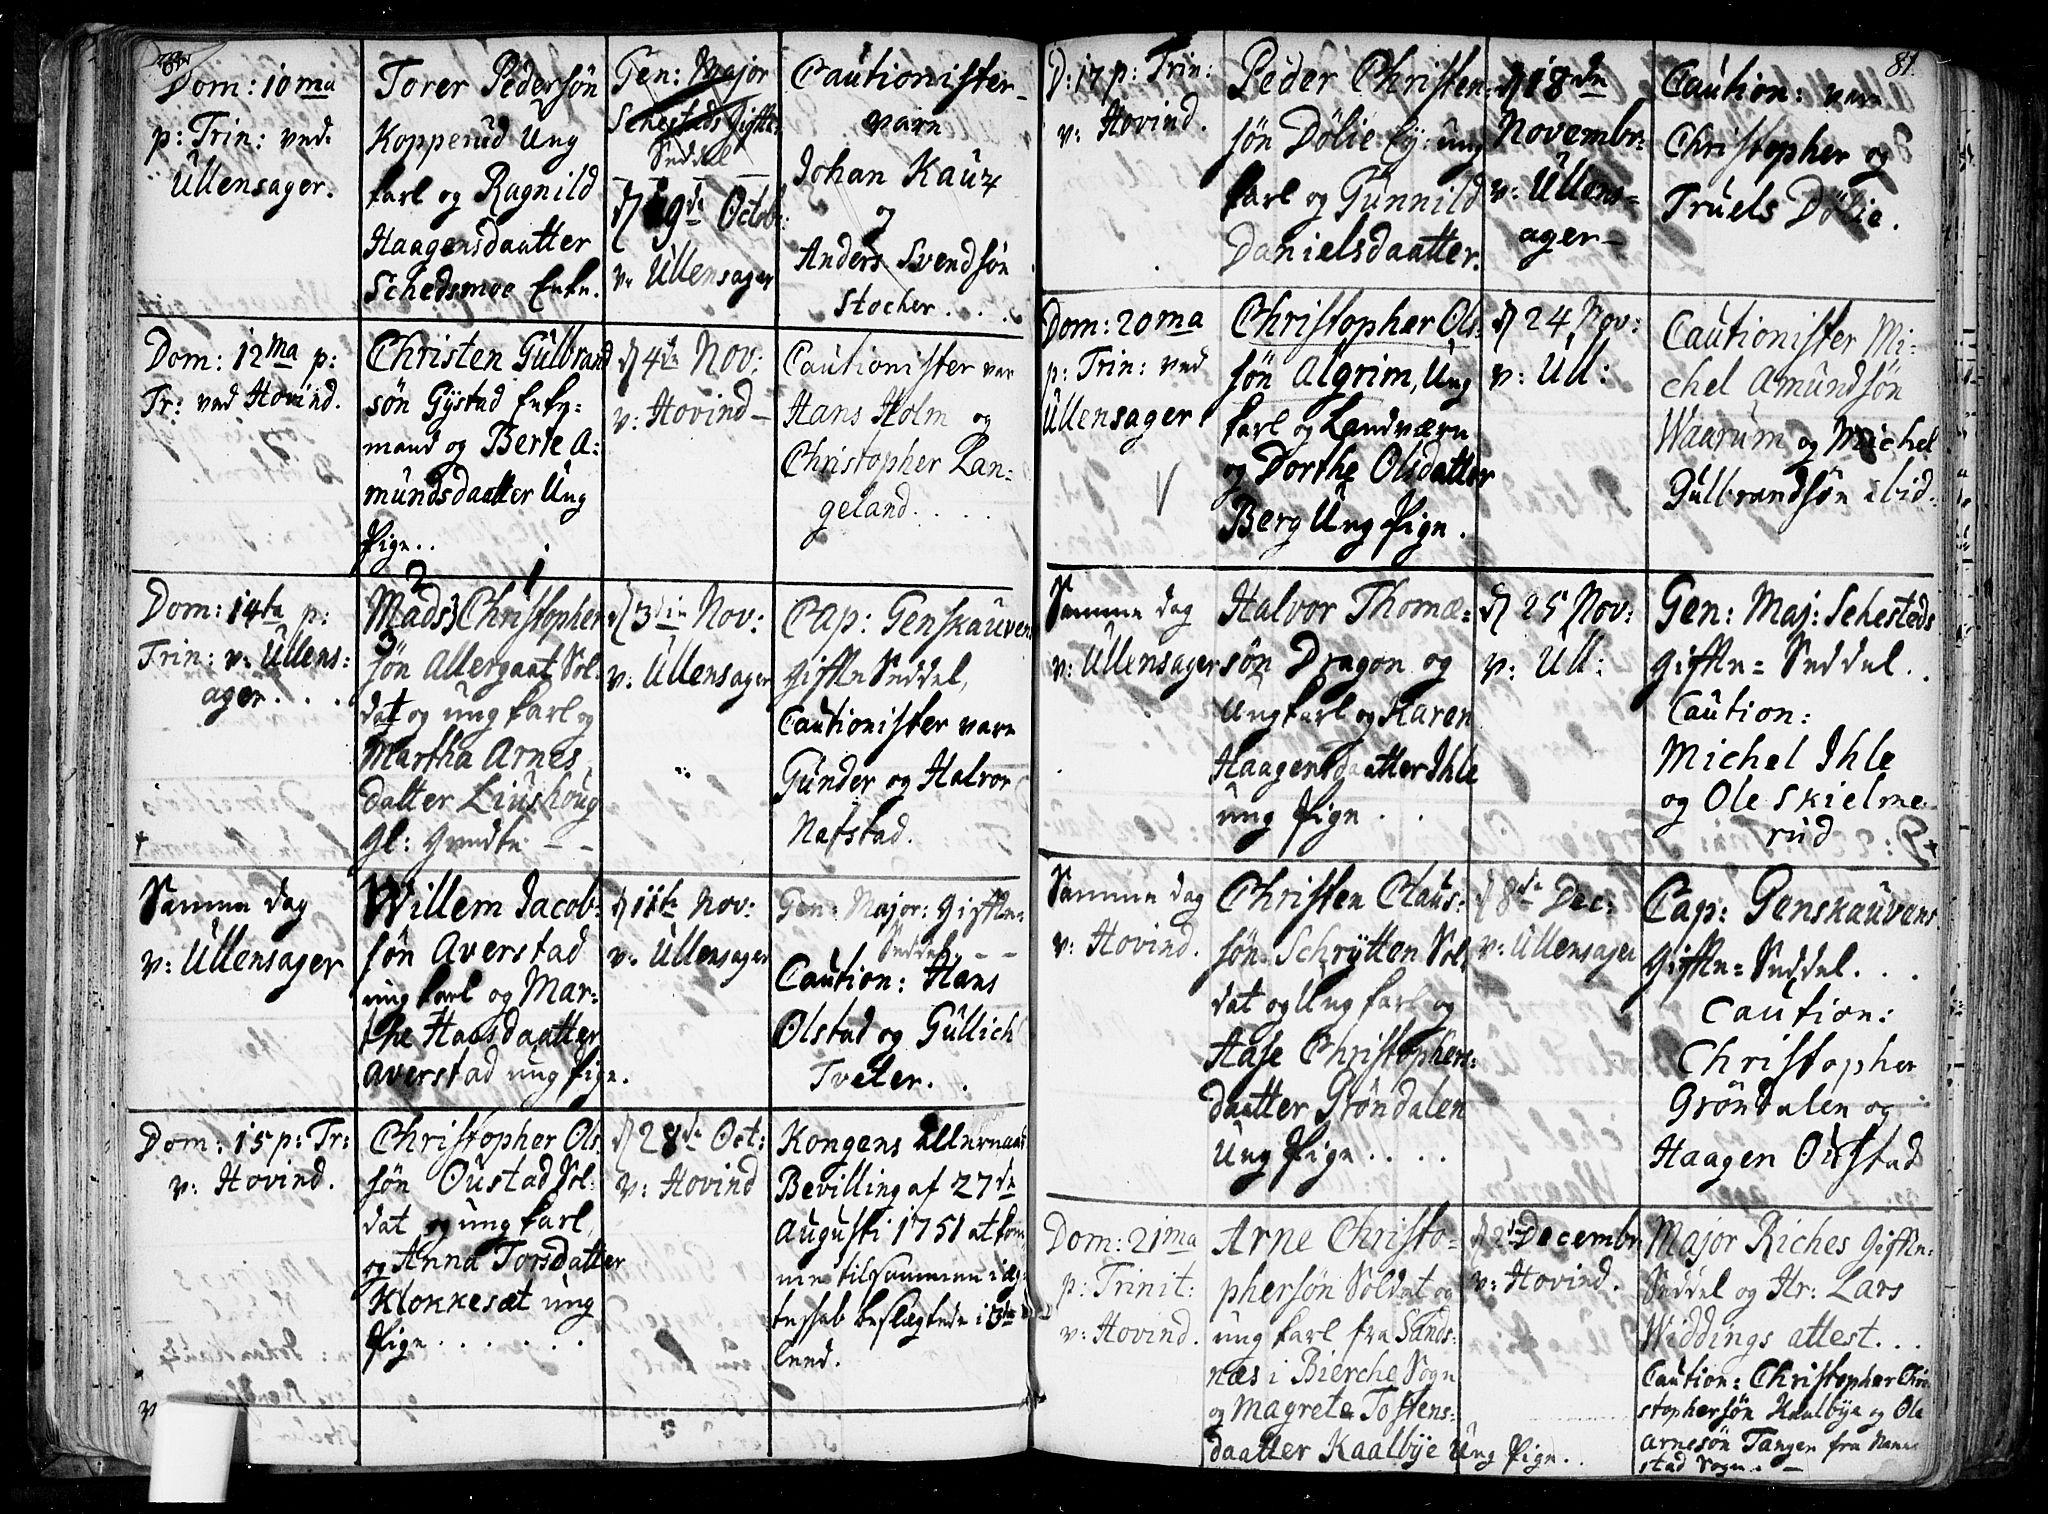 Dom: 10 ma
p: Trin: ved.
Ullensager.
Torer Pedersøn
Kopperud Ung
karl og Ragnild
Haagensdaatter
Schedsmoe Enke.
Gen: Major
Schesteds Gifte
Seddel
d 19de Octobr:
v: Ullensager
Cautionister
vare
Johan Kautz
og
Anders Svendsøn
Stocher . . .
Dom: 12 ma p:
Tr: ved Hovind.
Christen Gulbrand
søn Gystad Enke-
mand og Berte A:
mundsdaatter Ung
Pige . .
d 4de Nov:
v: Hovind
Cautionister var
Hans Holm og
Christopher Lan-
geland. . . .
Dom: 14ta p:
Trin: v: Ullens:
ager. . . .
2 1
Mads Christopher
3
søn Allergaat Sol-
dat og ung karl og
Martha Arnes
datter Liushoug
Gl:
d 3die Nov:
v: Ullensager
Cap: Genskauvens
Gifte Seddel,
Cautionister vare
Gunder og Halvor
Nafstad.
Samme dag
v: Ullensager
Willem Jacob-
søn Averstad
ung karl og Mar-
the Hansdaatter
Averstad ung Pige.
d 11te Nov:
v: Ullensager
Gen: Major: Gifte-
Seddel. - -
Caution: Hans
Olstad og Gullich
Tveter. .
Dom: 15 p: Tr:
v: Hovind.
Christopher Ols
søn Oustad Sol-
dat og ung karl,
og Anna Torsdatter
Klokkesæt ung
Pige . . . . . .
d 28de Oct:
v: Hovind
Kongens allernaad
Bevilling af 27de
Augusti 1751 at kom
me tilsammen i æg-
teskab beslægtede i 3die
leed.
81.
D: 17 p: Trin:
v: Hovind.
Peder Christen-
søn Dølie ung
karl og Gunnild
Danielsdaatter.
d 18de
Novembr:
v: Ullens=
ager
Caution: vare
Christopher og
Truels Dølie.
Dom: 20 ma
p: Trin: ved
Ullensager
Christopher Ols-
søn Algrim, Ung
karl og Landværn
og Dorthe Olsdatter
Berg Ung Pige.
d 24 Nov:
v: Ull:
Cautionister Mi-
chel Amundsøn
Waarum og Michel
Gulbrandsøn ibid.
Samme dag
v: Ullensager
Halvor Thomæ-
søn Dragon og
Ungkarl og Karen
Haagensdaatter Ihle
ung Pige . .
d 25 Nov:
v: Ull:
Gen: Maj: Schesteds
Gifte= Seddel . .
Caution:
Michel Ihle
og Ole Skielme
rud
Samme dag
v: Hovind.
Christen Claus-
søn Schrytten Sol-
dat og Ung karl og
Aase Christophers-
daatter Grøndalen
Ung Pige . . . .
d 8de Dec:
v: Ullensager
Cap: Genskauvens
Gifte= Seddel . . .
Caution:
Christopher
Grøndalen og
Haagen Oustad
Dom: 21 ma
p: Trinit:
v: Hovind.
Arne Christo-
phersøn Soldat og
ung karl fra Sands-
næs i Bierche Sogn
og Magrete Tostens-
daatter Kaalbye Ung Pige . .
d 2de Decembr
v: Hovind.
Major Riches Gifte-
Seddel og Hr: Lars
Widdings attest . . .
Caution: Christopher Chri
stophersøn Kaalbye og Ole
Arnesøn Tangen fra Nanne
stad Sogn. -